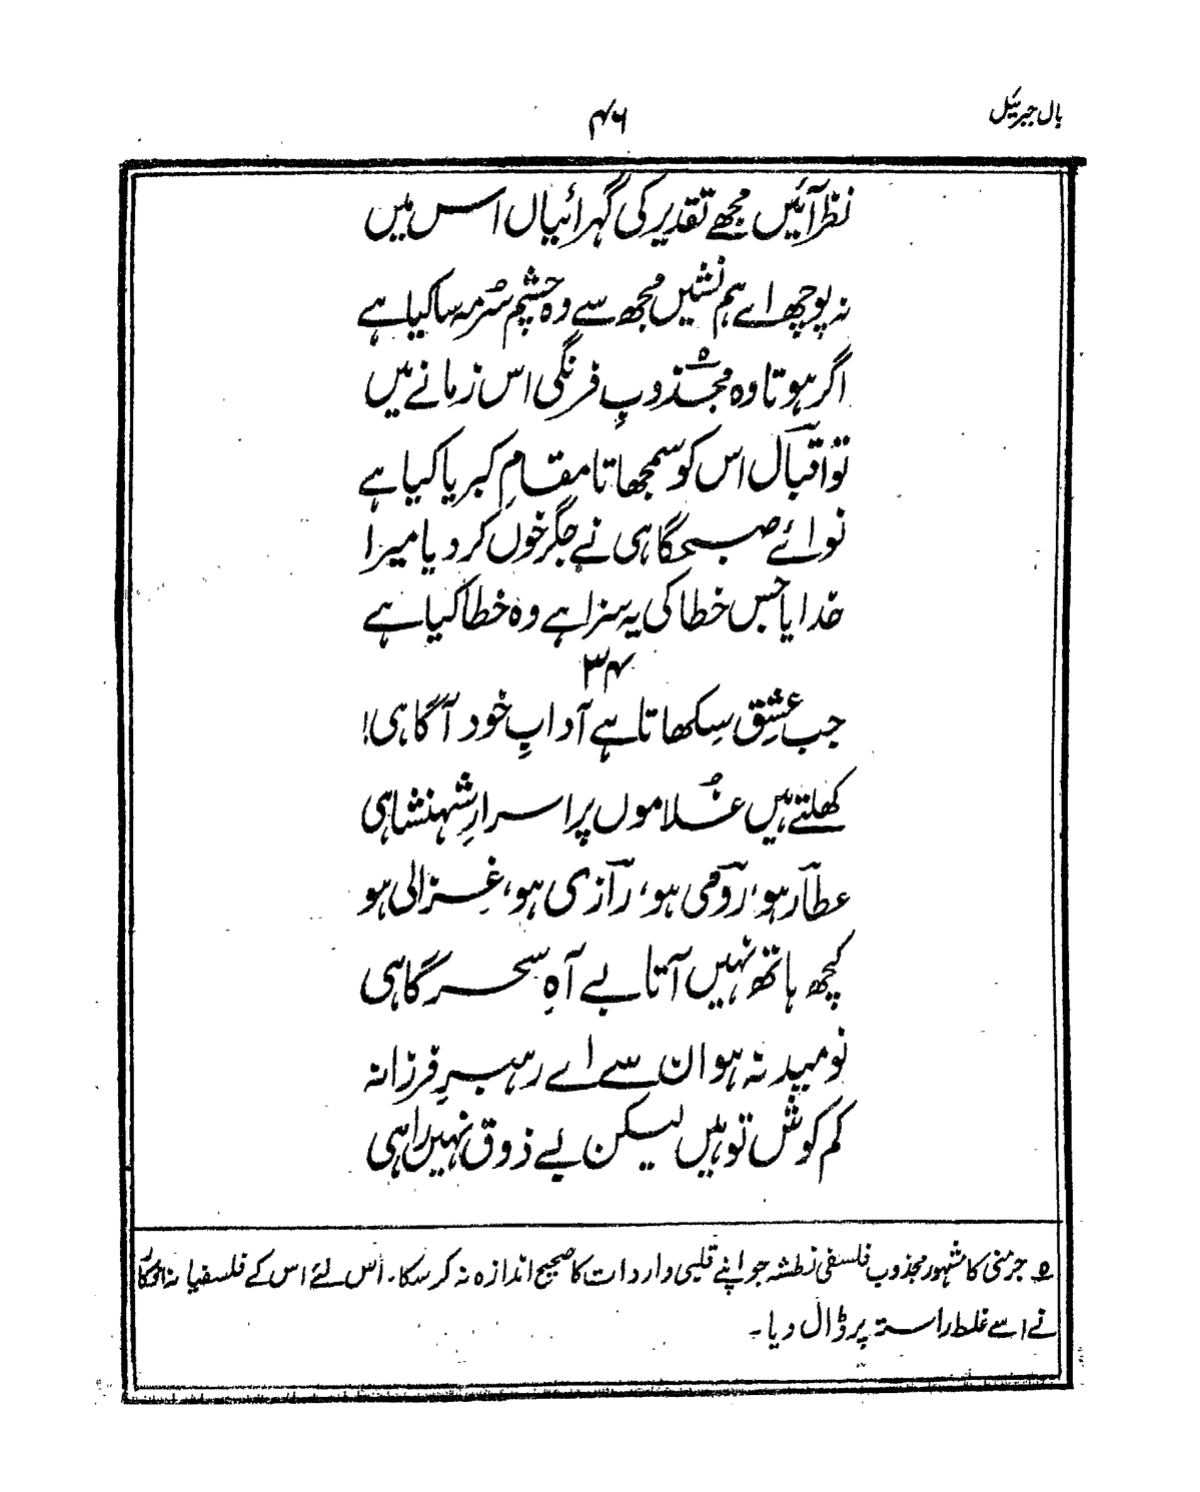 بال جبریل
۴۶
نظر آئیں مجھے تقدیر کی گہرائیاں اس میں
نہ پوچھ اے ہم نشیں مجھ سے وہ چشمِ سُرمہ سا کیا ہے
اگر ہوتا وہ مجذوبِ فرنگی اس زمانے میں
تو اقبال اس کو سمجھاتا مقامِ کبریا کیا ہے
نوائے صبحگاہی نے جگر خوں کر دیا میرا
خدایا جس خطا کی یہ سزا ہے وہ خطا کیا ہے
۳۴
جب عشق سِکھاتا ہے آدابِ خود آگاہی!
کھلتے ہیں غُلاموں پر اسرارِ شہنشاہی
عطار ہو، رومی ہو، رازی ہو، غزالی ہو
کچھ ہاتھ نہیں آتا بے آہِ سحر گاہی
نومید نہ ہو ان سے اے رہبرِ فرزانہ
کم کوش تو ہیں لیکن بے ذوق نہیں راہی
ہ جرمنی کا مشہور مجذوب فلسفی نطشہ جو اپنے قلبی واردات کا صحیح اندازہ نہ کر سکا۔ اس لئے اس کے فلسفیانہ افکار
نے اسے غلط راستہ پر ڈال دیا۔